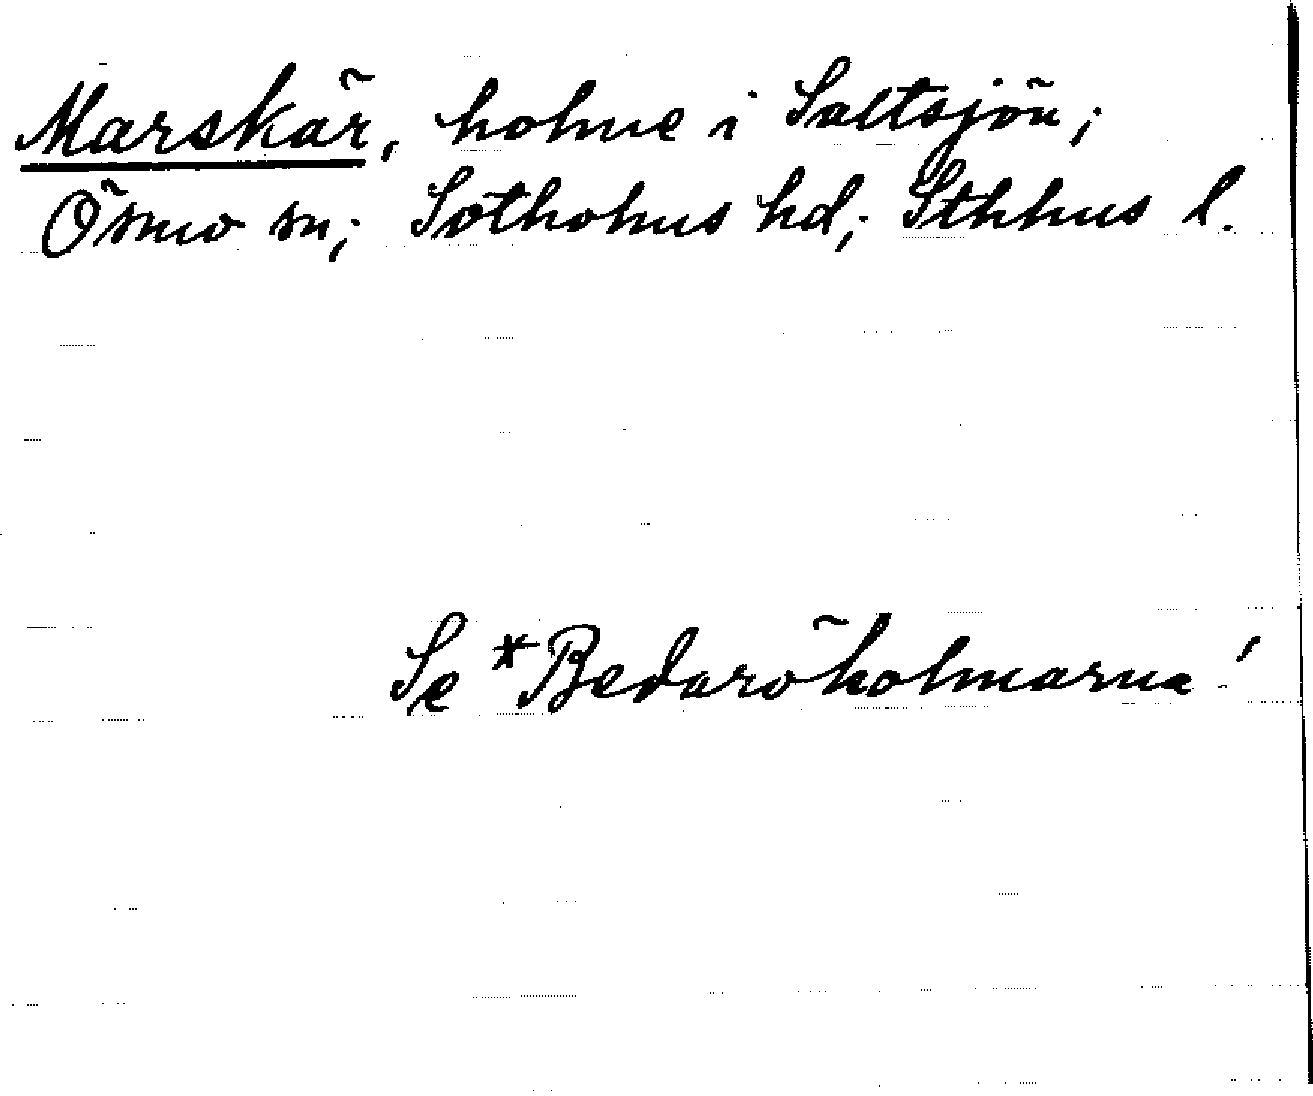 Marskär, holme i Saltsjön;
Ösmo sn; Sotholms hd; Sthlms l.
Se *Bedaröholmarna!